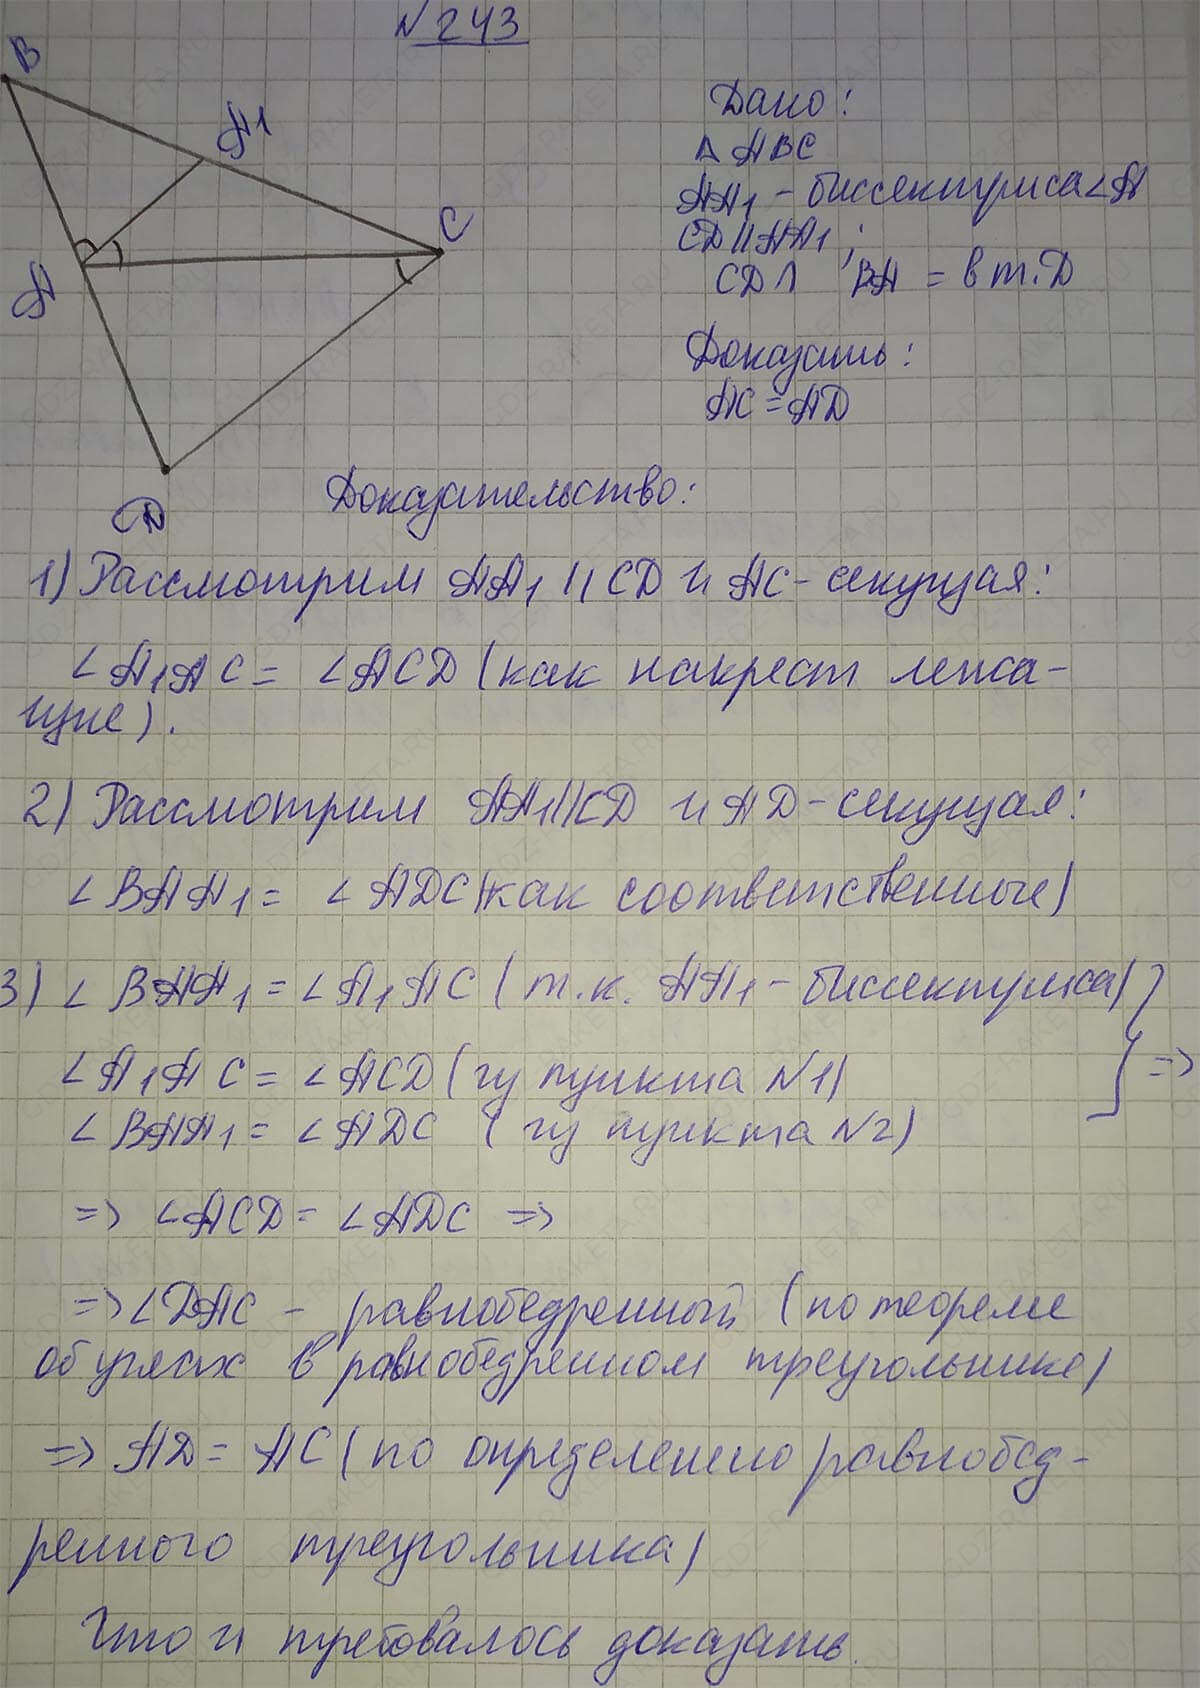 N 243
B
A1
C
A
D
Дано:
Δ ABC
AA1 - биссектриса ∠A
CD || AA1;
CD ∩ BA = в т. D
Доказать:
AC = AD
Доказательство:
1) Рассмотрим AA1 || CD и AC - секущая:
∠A1AC = ∠ACD (как накрест лежа-
щие).
2) Рассмотрим AA1 || CD и AD - секущая:
∠BAA1 = ∠ADC (как соответственные)
3) ∠BAA1 = ∠A1AC (т.к. AA1 - биссектриса)
∠A1AC = ∠ACD (из пункта N1) =>
∠BAA1 = ∠ADC (из пункта N2)
=> ∠ACD = ∠ADC =>
=> ∠DAC - равнобедренный (по теореме
об углах в равнобедренном треугольнике)
=> AD = AC (по определено равнобед-
ренного треугольника)
Что и требовалось доказать.